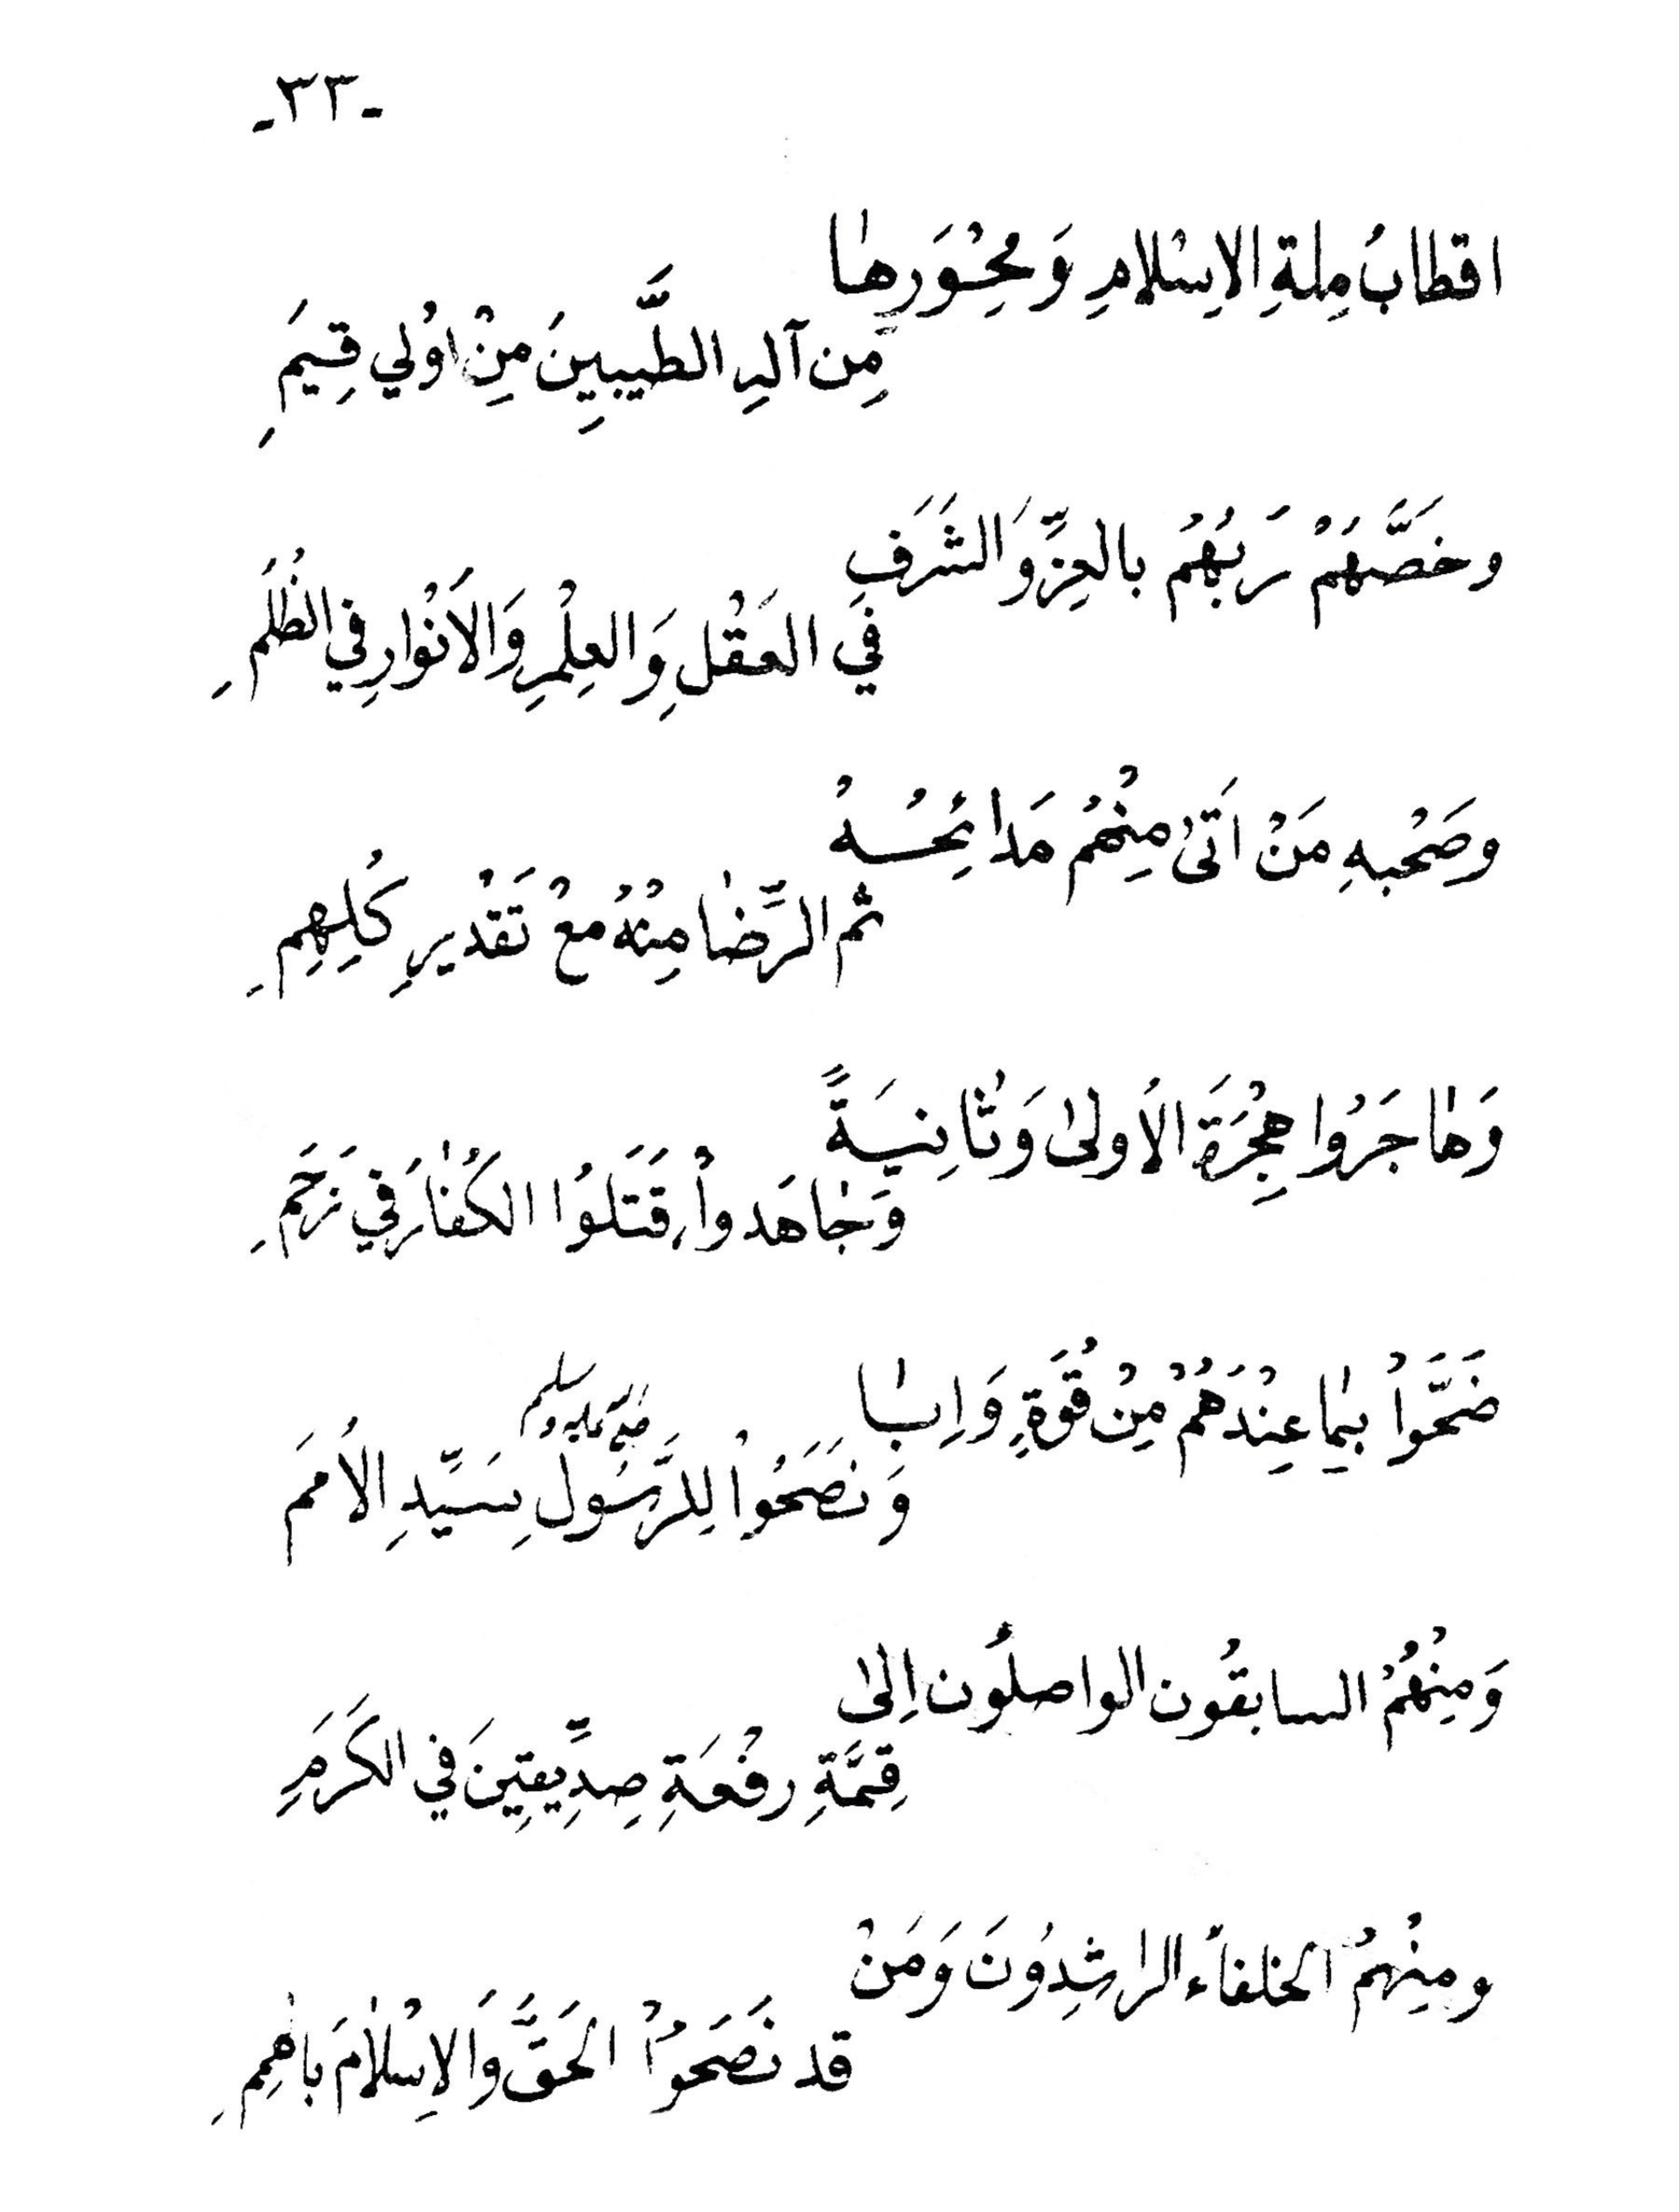 -٣٣-
اقطابُ مِلةِ الاِسْلامِ وَ مِحْوَرِهٰا
مِن آلهِ الطَّيِبِينَ مِنْ اوُلي قِيَمِ
وخَصَّهَمْ رَبُهُمْ بالعِزِّ وَالشَرَفِ
فيَ العَقْلِ وَالعِلْمِ وَالاَنْوارِ فِي الظُلَمِ
وصَحْبهِ مَنْ اَتىٰ مِنْهُمْ مَدائِحُهُ
ثم الرِّضٰا مِنْهُ مَعْ تَقْدْيرِ كُلِهِمِ
وَهٰاجَرُوا هِجْرَةَ الاَولىٰ وَثٰانِيَةً
وَجٰاهَدواْ، قَتَلوُا الكُفٰارَ فِي زَحَمِ
ضَحَّواْ بِمٰا عِنْدَهُمْ مِنْ قُوَةٍ وَاِبٰا
وَنَصَحُواْ لِلرَّسُولِ سَيِّدِ الاُمَمَ
صلى الله عليه وسلم
وَمِنْهُمْ السابقُون الواصلُون اِلىٰ
قِمَّةِ رفْعَةِ صِدِّيقِينَ فيِ الكَرَمِ
ومِنْهمُ الخلفاُء الراشِدوُنَ وَمَنْ
قد نَصَحوُاْ الحَقَّ وَالاِسْلاٰمَ باهِمِ